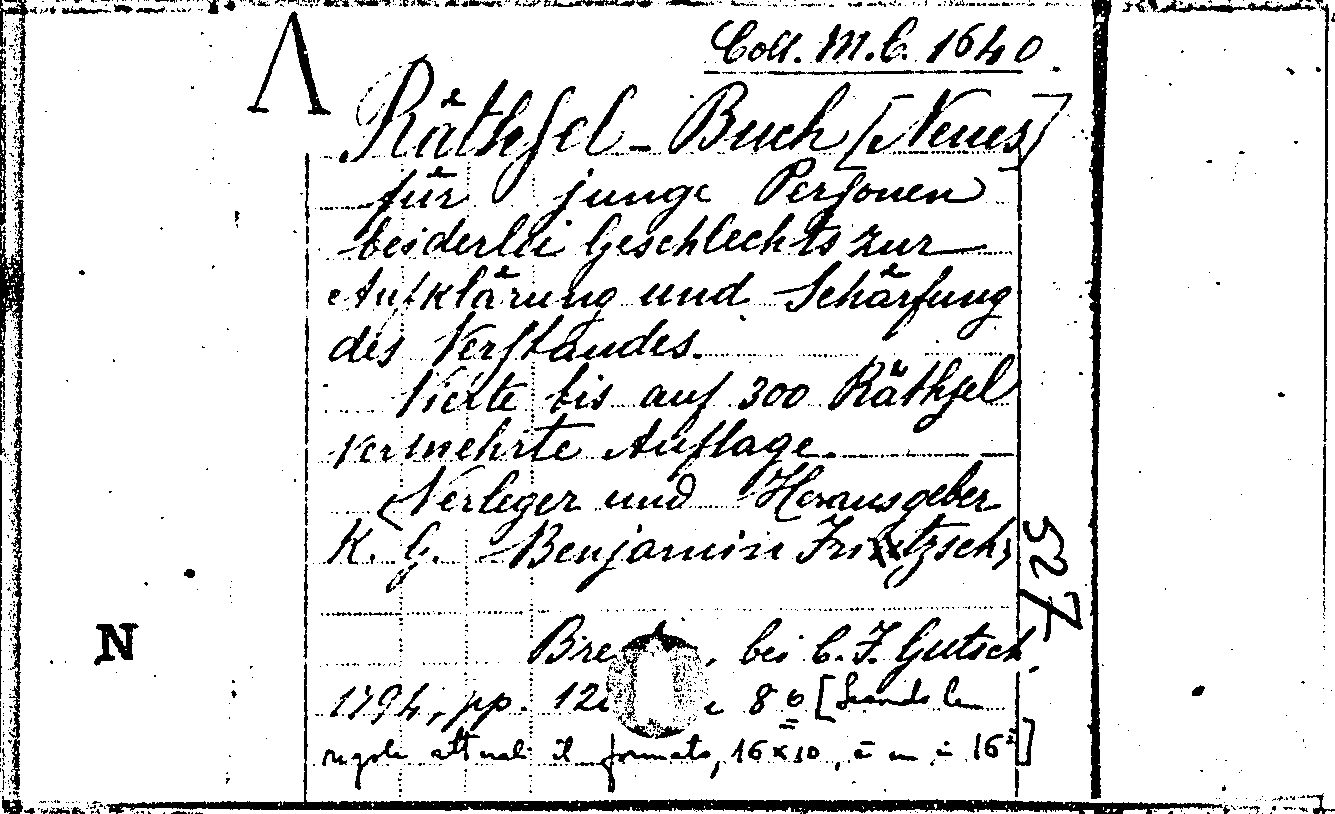 Λ
Coll. M. C. 1640.
Räthsel-Buch [Neues]
für junge Personen
beiderlei Geschlechts zur
Aufklärung und Schärfung
des Verstandes.
Vierte bis auf 300 Räthsel
vermehrte Auflage.
Verleger und Herausgeber
K. G. Benjamin Fritzsch,
527
N
bei C. F. Gutsch.
1794, pp. 8º [Secondo le
regole attuali il formato, 16×10, è un 16º]